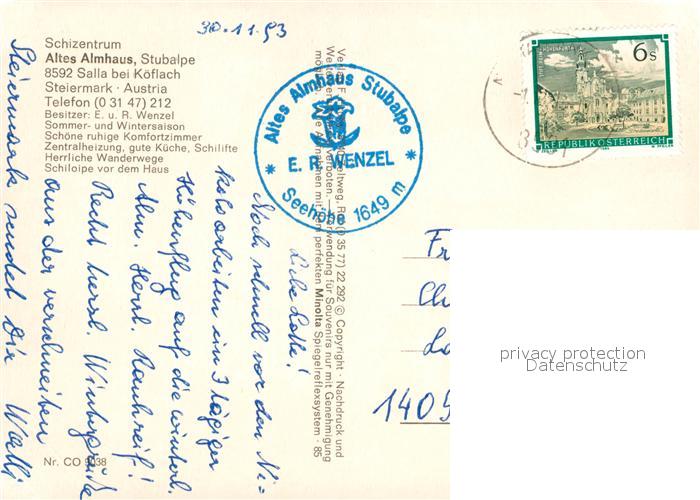 30.11.93
Schizentrum
Altes Almhaus, Stubalpe
8592 Salla bei Köflach
Steiermark · Austria
Telefon (0 31 47) 212
Besitzer: E. u. R. Wenzel
Sommer- und Wintersaison
Schöne ruhige Komfortzimmer
Zentralheizung, gute Küche, Schilifte
Herrliche Wanderwege
Schiloipe vor dem Haus
Altes Almhaus Stubalpe
* E. R. WENZEL *
Seehöhe 1649 m
6s
STIFT REIN-HOHENFURTH
REPUBLIK ÖSTERREICH
(0 35 77) 22 292 © Copyright · Nachdruck und
verboten. — Verwendung für Souvenirs nur mit Genehmigung
Aufnahmen mit dem perfekten Minolta Spiegelreflexsystem · 85
Liebe Lotte!
Noch schnell vor den Ni=
koloarbeiten ein 3 tägiger
Höhenflug auf die winterl.
Alm. Herrl. Rauhreif!
Recht herzl. Wintergrüße
aus der verschneiten
Steiermark sendet Dir Walli
Fr
Ch
La
1405
Nr. CO 9038
privacy protection
Datenschutz